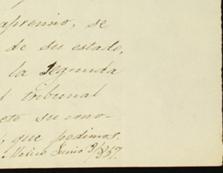 apremio, se
de su estado,
la Segunda
l tribunal
eto su cono-
, que pedimos.
Junio 8/857.